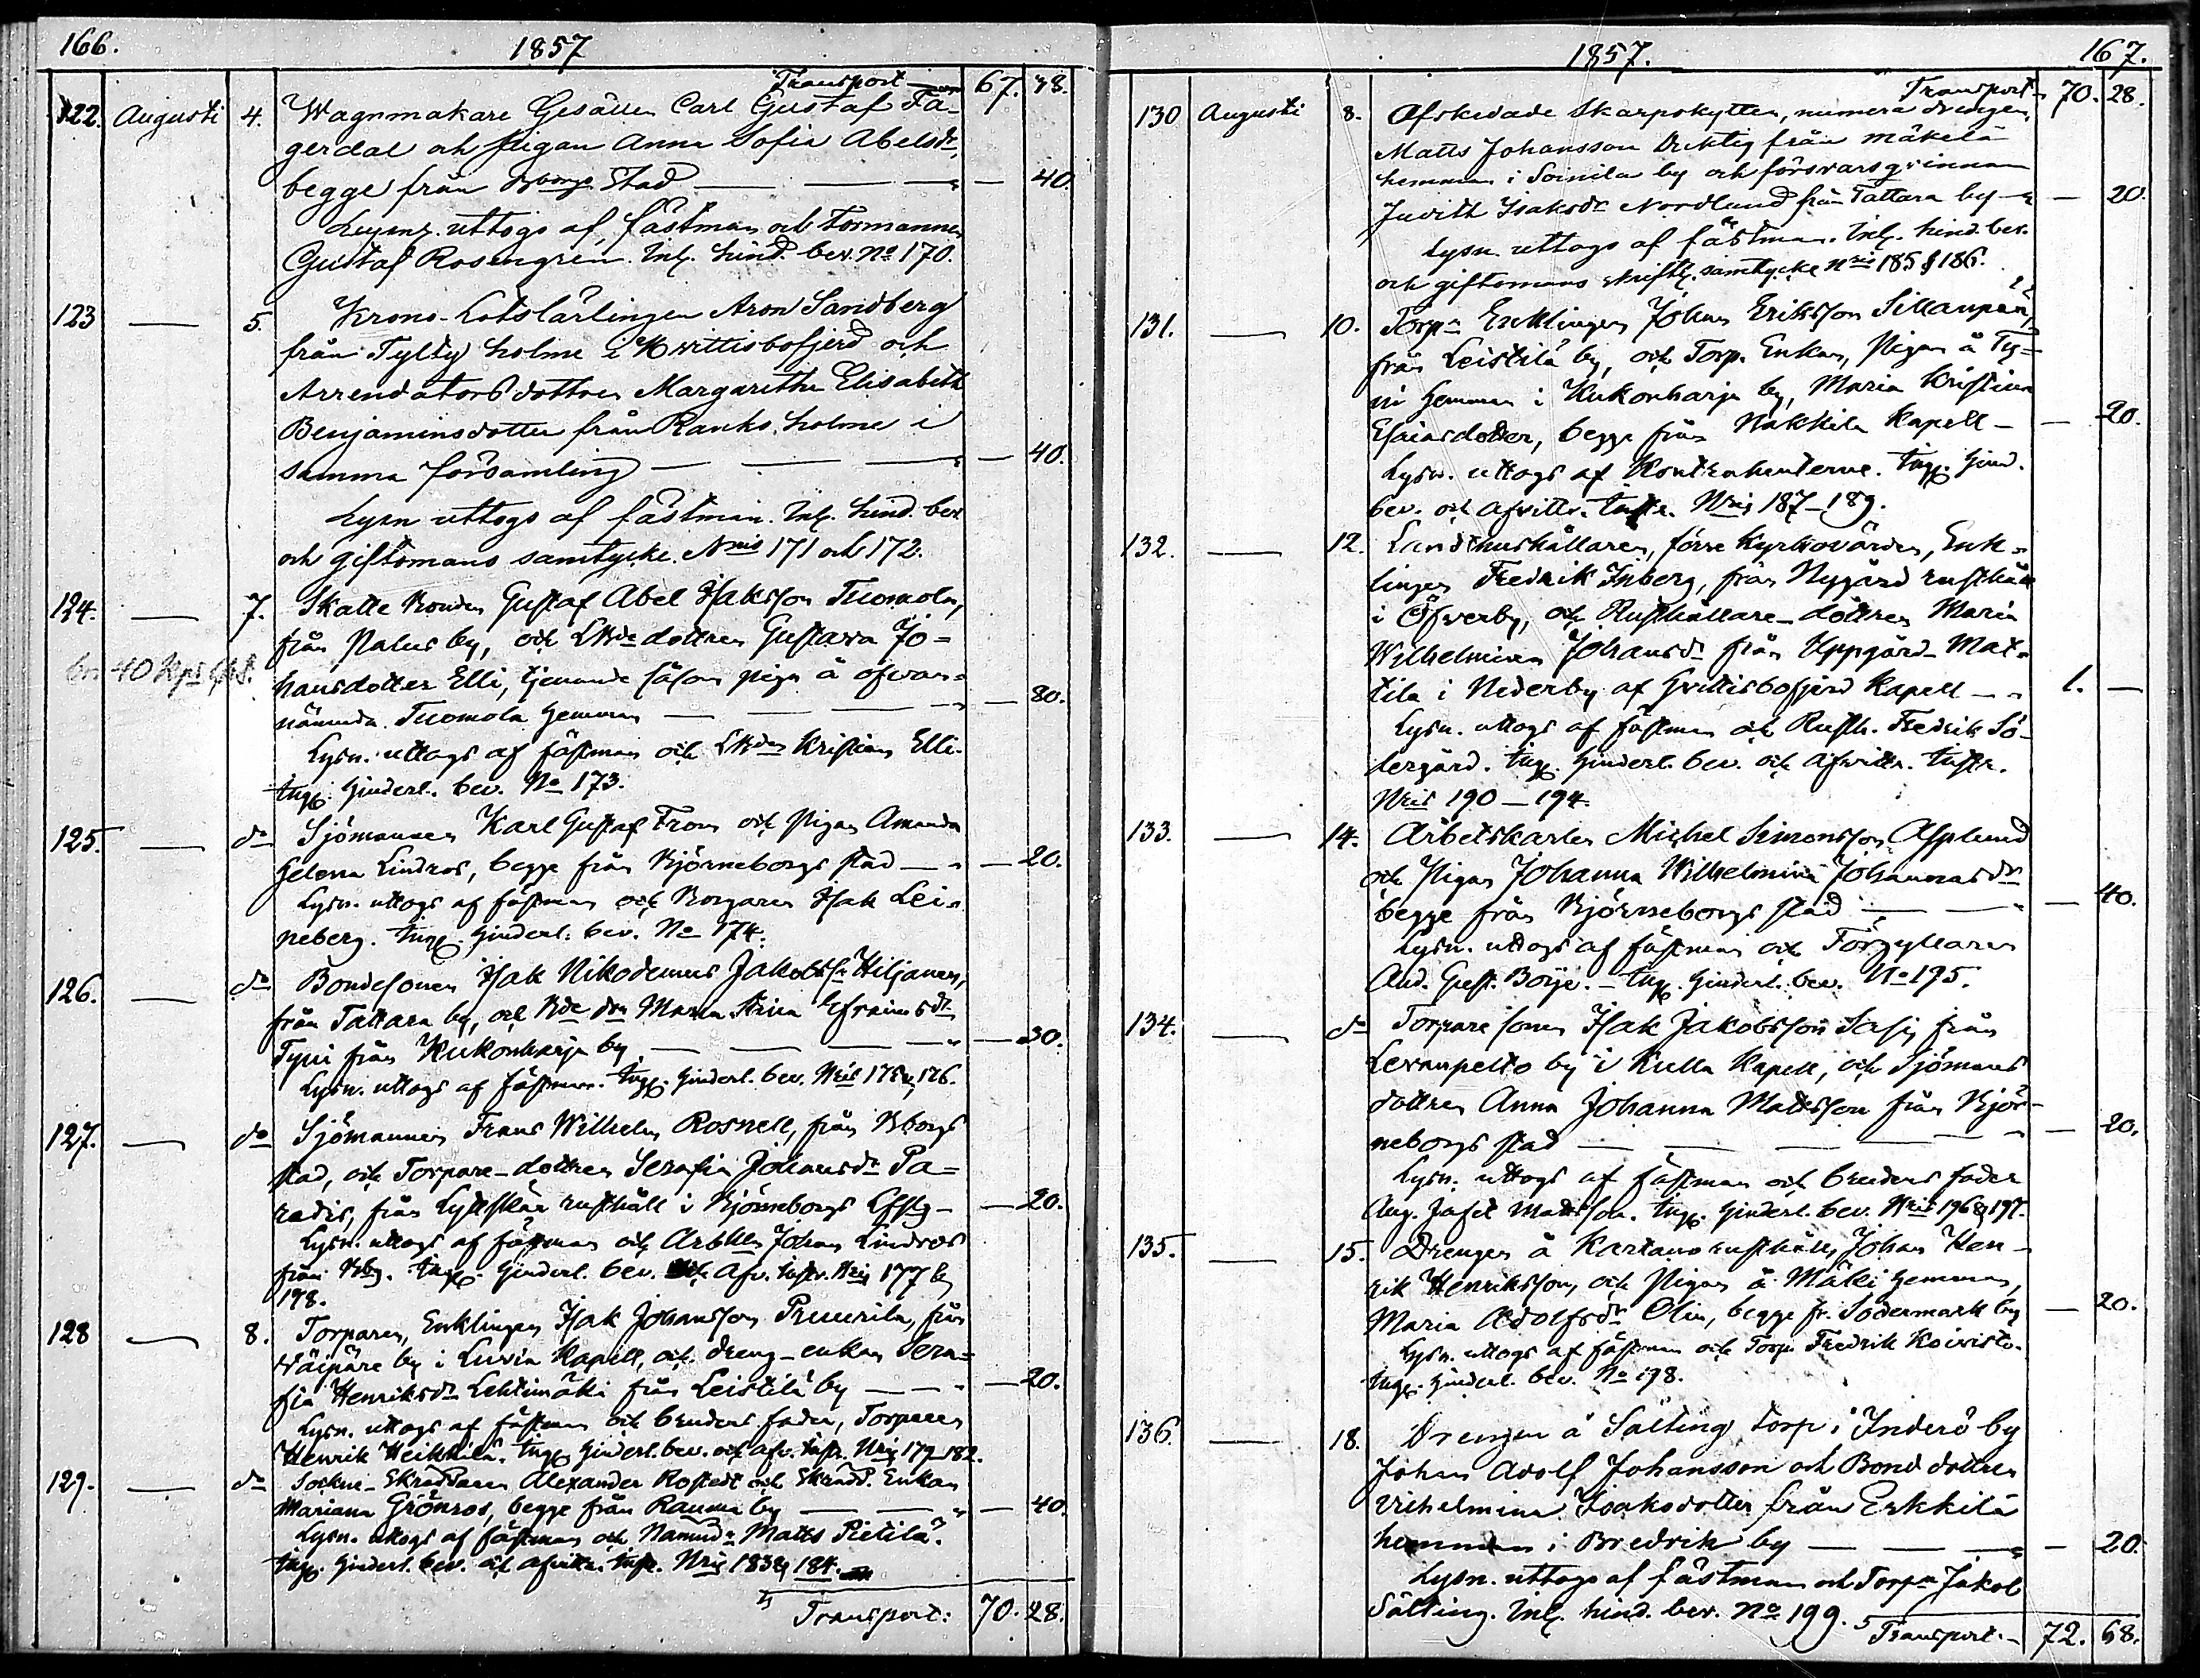 166.
1857
Transport — 67. 38.
122. Augusti 4. Wagnmakare Gesällen Carl Gustaf Fa-
gerdal och pigan Anna Sofia Abelsdr,
begge från Bjborgs Stad — — — 40.
Lysng. uttogs af fästman och Formannen
Gustaf Rosengren. Inl. hind. bev. No 170.
123 — 5. Krono-Lotslärlingen Aron Sandberg
från Tylty holme i Hvittisbofjerd och
Arrendatorsdottren Margaretha Elisabeth
Benjaminsdotter från Ranks. holme i
samma församling — — — 40.
Lysn uttogs af fästman. Inl. hind. bev
och giftomans samtycke. Nris 171 och 172.
124. — 7. Skatte Bonden Gustaf Abel Isaksson Tuomola,
från Palus by, och dottren Gustava Jo-
40 hansdotter Elli, tjenande såsom piga å ofvan-
nämnda Tuomola hemman — — — 80.
Lysn. uttogs af fästman och Kristian Elli.
Ingp. hinderl. bev. No 173.
125. — do Sjömannen Karl Gustaf From och Pigan Amanda
Helena Lindros, begge från Björneborgs stad — — 20.
Lysn. uttogs af fästman och Borgaren Isak Lei-
neberg. Ingp. hinderl. bev. No 174.
126. — do Bondesonen Isak Nikodemus Jakobss. Hiljanen,
från Tattara by, och Bde dn Maria Stina Efraimsdr
Typi från Kukonharja by — — — — 30.
Lysn. uttogs af fästman. Ingp. hinderl. bev. Nris 175 & 176.
127. — do Sjömannen Frans Wilhelm Rosnell, från Bborgs
stad, och Torpare-dottren Serafia Johansdr Pa-
radis, från Lyttskär rusthåll i Björneborgs — 20.
Lysn. uttogs af fästman och Arbkln Johan Lindros
från Bbg. Ingp. hinderl. bev. och Afv. instr. Nris 177 &
178.
128 — 8. Torparen, Enklingen Isak Johansson Pruurila, från
Wäipäre by i Luvia Kapell, och dreng-enkan Sera-
fia Henriksdr Lehtimäki från Leistilä by — — — 20.
Lysn. uttogs af fästman och brudens fader, Torparen
Henrik Heikkilä. Ingp. hinderl. bev. och afv. instr. Nris 179–182.
129. — do Sockne-Skräddaren Alexander Rostedt och Skrädd. Enkan
Mariana Grönros, begge från Rauma by — — — 40
Lysn. uttogs af fästman och Nämnd. Matts Pietilä.
Ingp. hinderl. bev. och afvittr. instr. Nris 183 & 184.
Transport: 70. 28.
1857. 167.
Transport 70. 28.
130 Augusti 8. Afskedade Skarpskytten, numera drengen,
Matts Johansson Duktig från Mäkelä
hemman i Soinila by och försvarsqvinnan
Judith Isaksdr Nordlund från Tattara by — — 20.
Lysn. uttogs af fästman. Inl. hind. bev.
och giftomans skriftl. samtycke Nris 185 & 186.
131. — 10. Torp. Enklingen Johan Eriksson Sillanpää,
från Leistilä by, och Torp. Enkan, Pigan å Ty-
ni hemman i Kukonharja by, Maria Kristina
Esaiasdotter, begge från Nakkila Kapell — — 20.
Lysn. uttogs af Kontrahenterne. Ingp. hind.
bev. och afvittr. instr. Nris 187–189.
132. — 12. Landthushållaren, förre Kyrkovärden, Enk-
lingen Fredrik Inberg, från Nygård rusthåll
i Öfverby, och Rusthållare-dottren Maria
Wilhelmina Johansdr från Uppgård-Mat-
tila i Nederby af Hvittisbofjerd Kapell — — 1. —
Lysn. uttogs af fästman och Rusth. Fredrik Sö-
dergård. Ingp. hinderl. bev. och afvittr. instr.
Nris 190–194.
133. — 14. Arbetskarlen Michel Simonsson Asplund
och Pigan Johanna Wilhelmina Johannesdr
begge från Björneborgs stad — — — 40.
Lysn. uttogs af fästman och Förgyllaren
And. Gust. Böije. — Ingp. hinderl. bev. No 195.
134. — do Torparesonen Isak Jakobsson Sasij från
Levanpelto by i Kulla Kapell, och Sjömans
dottren Anna Johanna Mattsson från Björ-
neborgs stad — — — — 20.
Lysn. uttogs af fästman och brudens fader
Aug. Josef Mattsson. Ingp. hinderl. bev. Nris 196 & 197.
135. — 15. Drengen å Kartano rusthåll, Johan Hen-
rik Henriksson, och Pigan å Mäki hemman,
Maria Adolfsdr Olin, begge fr. Södermark by — 20.
Lysn. uttogs af fästman och Torp. Fredrik Koivisto.
Ingp. hinderl. bev. No 198.
136. — 18. Drengen å Sälting torp i Inderö by
Johan Adolf Johansson och Bonddottren
Vilhelmina Isaksdotter från Erkkilä
hemman i Bredvik by — — — — 20.
Lysn. uttogs af fästman och Torp. Jakob
Sälting. Inl. hind. bev. No 199.
Transport. — 72. 68.